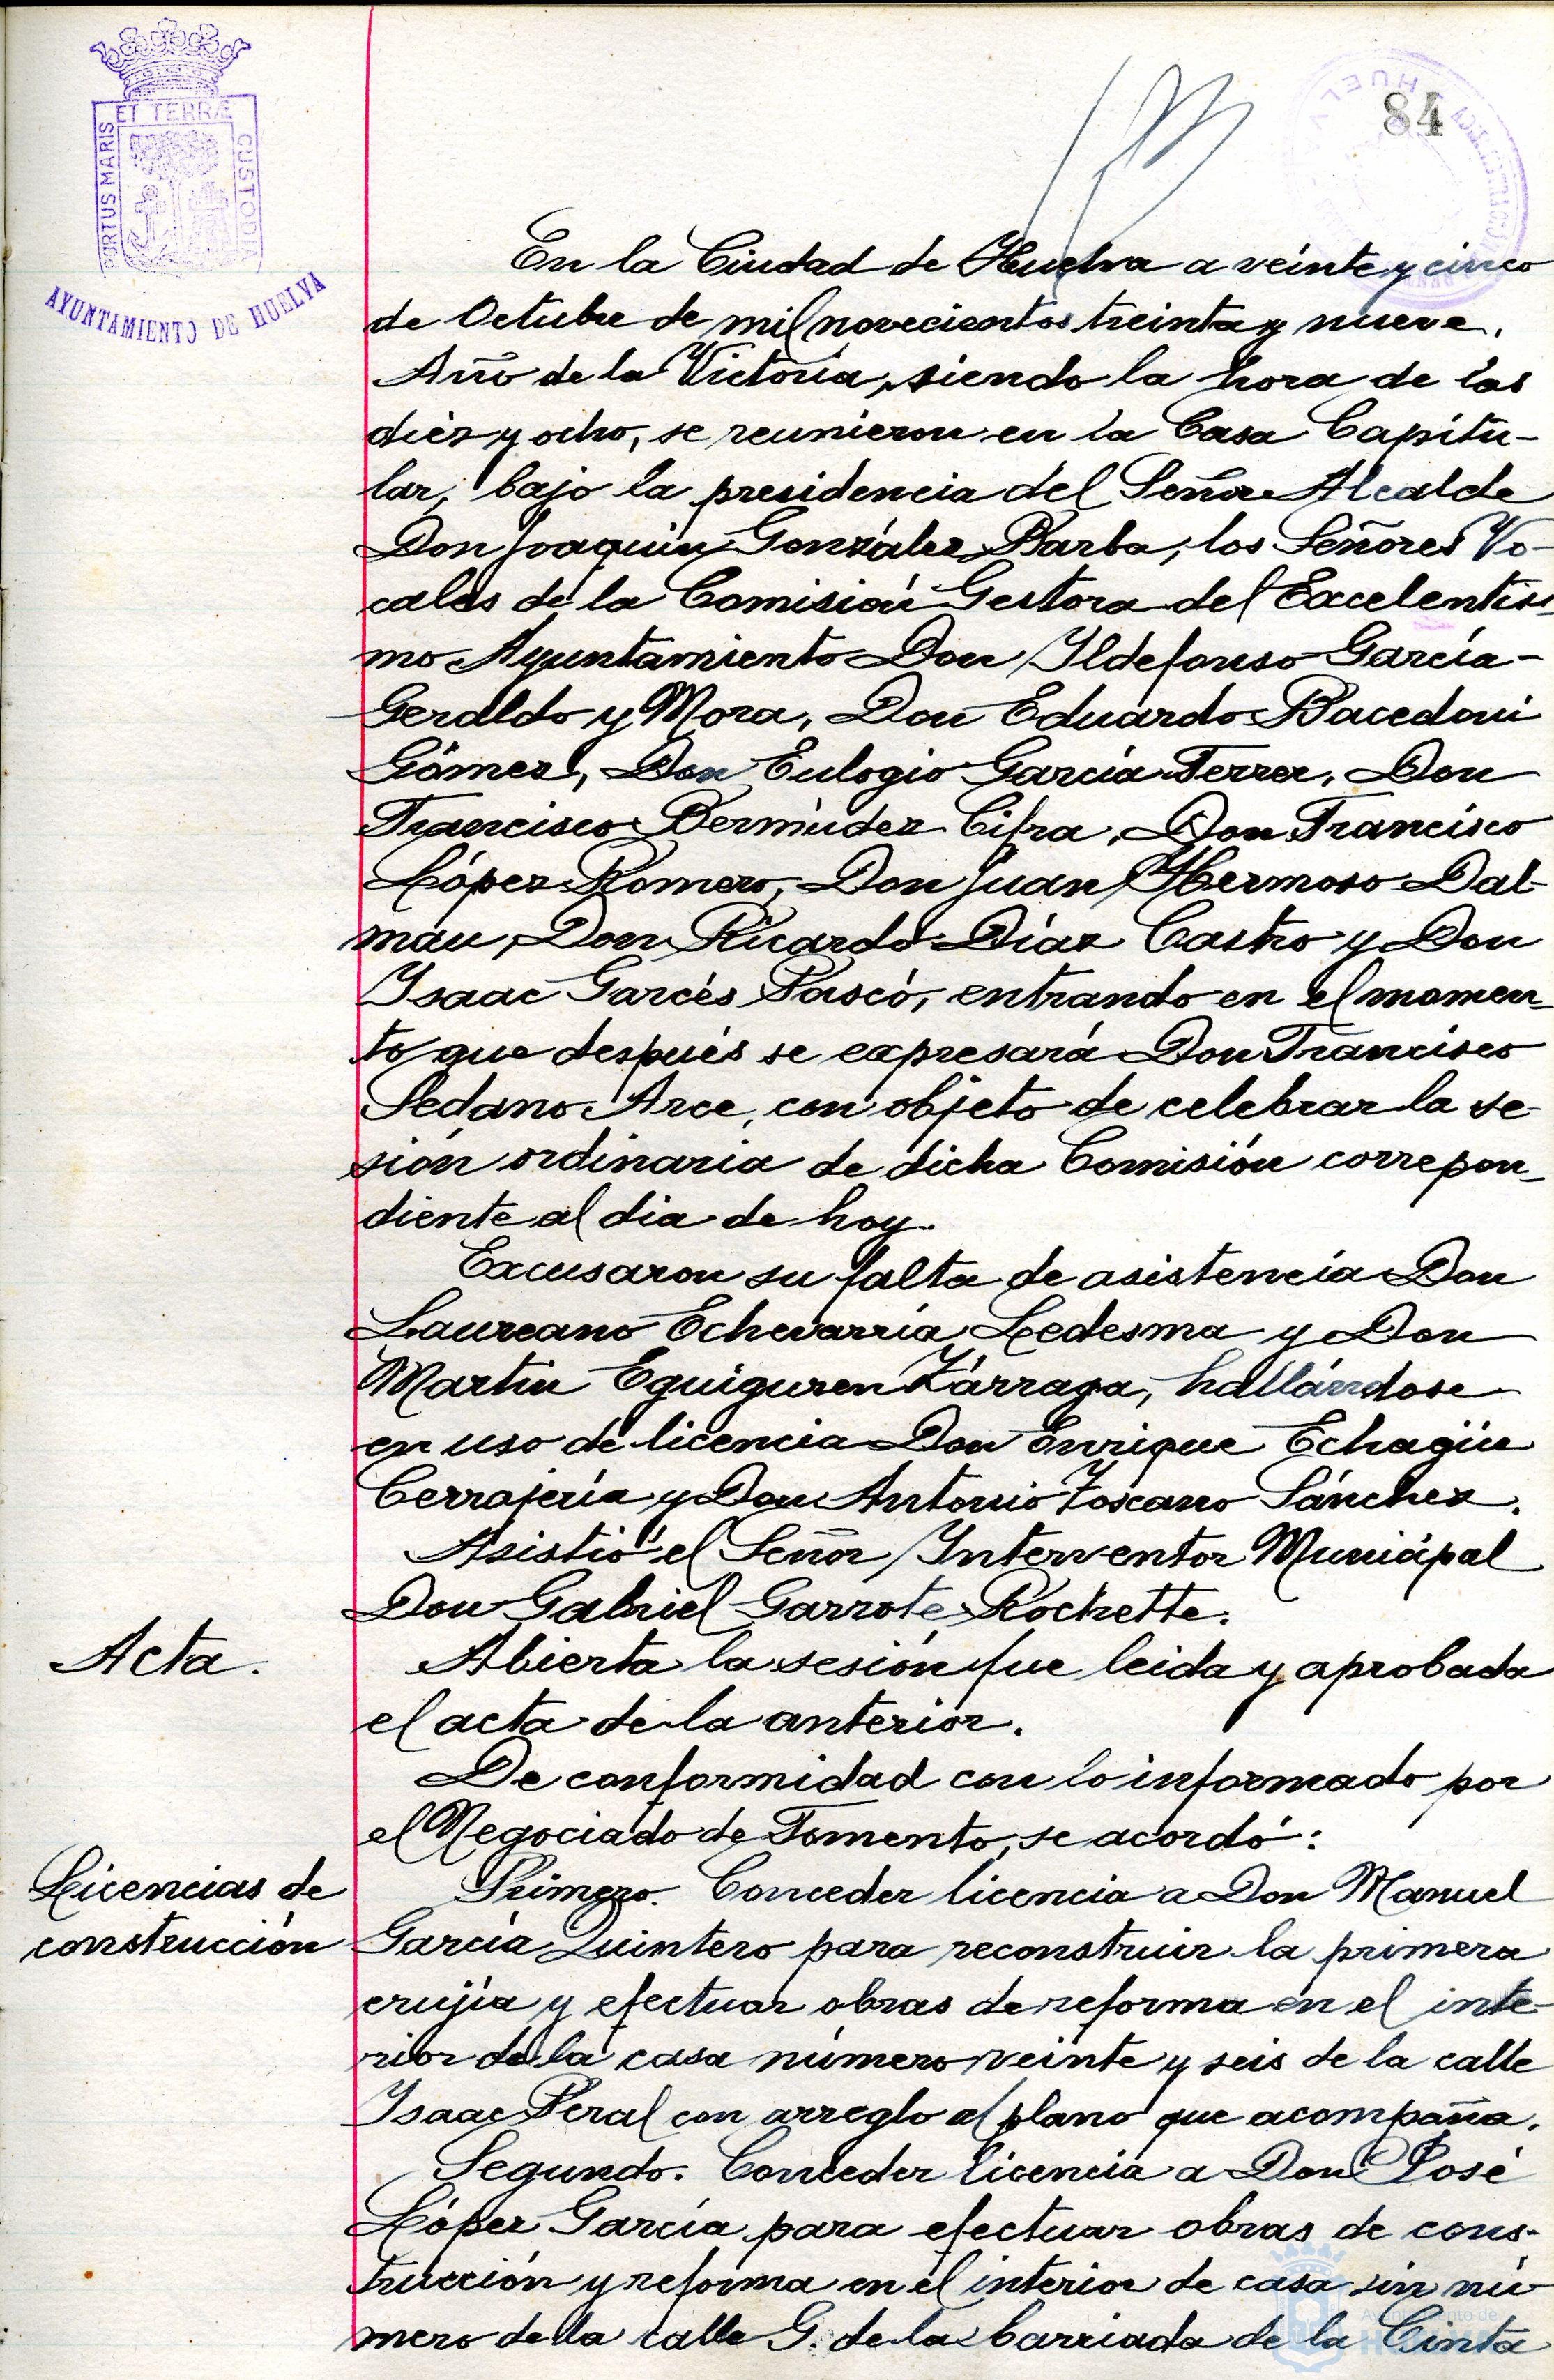 PORTUS MARIS ET TERRÆ CUSTODIA
AYUNTAMIENTO DE HUELVA
84
En la Ciudad de Huelva a veinte y cinco
de Octubre de mil novecientos treinta y nueve.
Año de la Victoria, siendo la hora de las
diez y ocho, se reunieron en la Casa Capitu-
lar, bajo la presidencia del Señor Alcalde
Don Joaquin González Barba, los Señores Vo-
cales de la Comisión Gestora del Excelentísi-
mo Ayuntamiento Don Ildefonso García-
Geraldo y Mora, Don Eduardo Bacedoni
Gómez, Don Eulogio García Ferrer, Don
Francisco Bermúdez Cifra, Don Francisco
López Romero, Don Juan Hermoso Dal-
mau, Don Ricardo Díaz Castro y Don
Isaac Garcés Pascó, entrando en el momen-
to que después se expresará Don Francisco
Sedano Arce, con objeto de celebrar la se-
sión ordinaria de dicha Comisión correpon-
diente al dia de hoy.
Excusaron su falta de asistencia Don
Laureano Echevarría Ledesma y Don
Martin Eguiguren Zárraga, hallándose
en uso de licencia Don Enrique Echagüe
Cerrajería y Don Antonio Toscano Sánchez.
Asistió el Señor Interventor Municipal
Don Gabriel Garrote Rochette.
Acta.
Abierta la sesión fue leida y aprobada
el acta de la anterior.
De conformidad con lo informado por
el Negociado de Fomento, se acordó:
Licencias de
construcción
Primero. Conceder licencia a Don Manuel
García Quintero para reconstruir la primera
crujía y efectuar obras de reforma en el inte-
rior de la casa número veinte y seis de la calle
Isaac Peral con arreglo al plano que acompaña.
Segundo. Conceder licencia a Don José
López García para efectuar obras de cons-
trucción y reforma en el interior de casa sin nú-
mero de la calle G. de la barriada de la Cinta
Ayuntamiento de
HUELVA